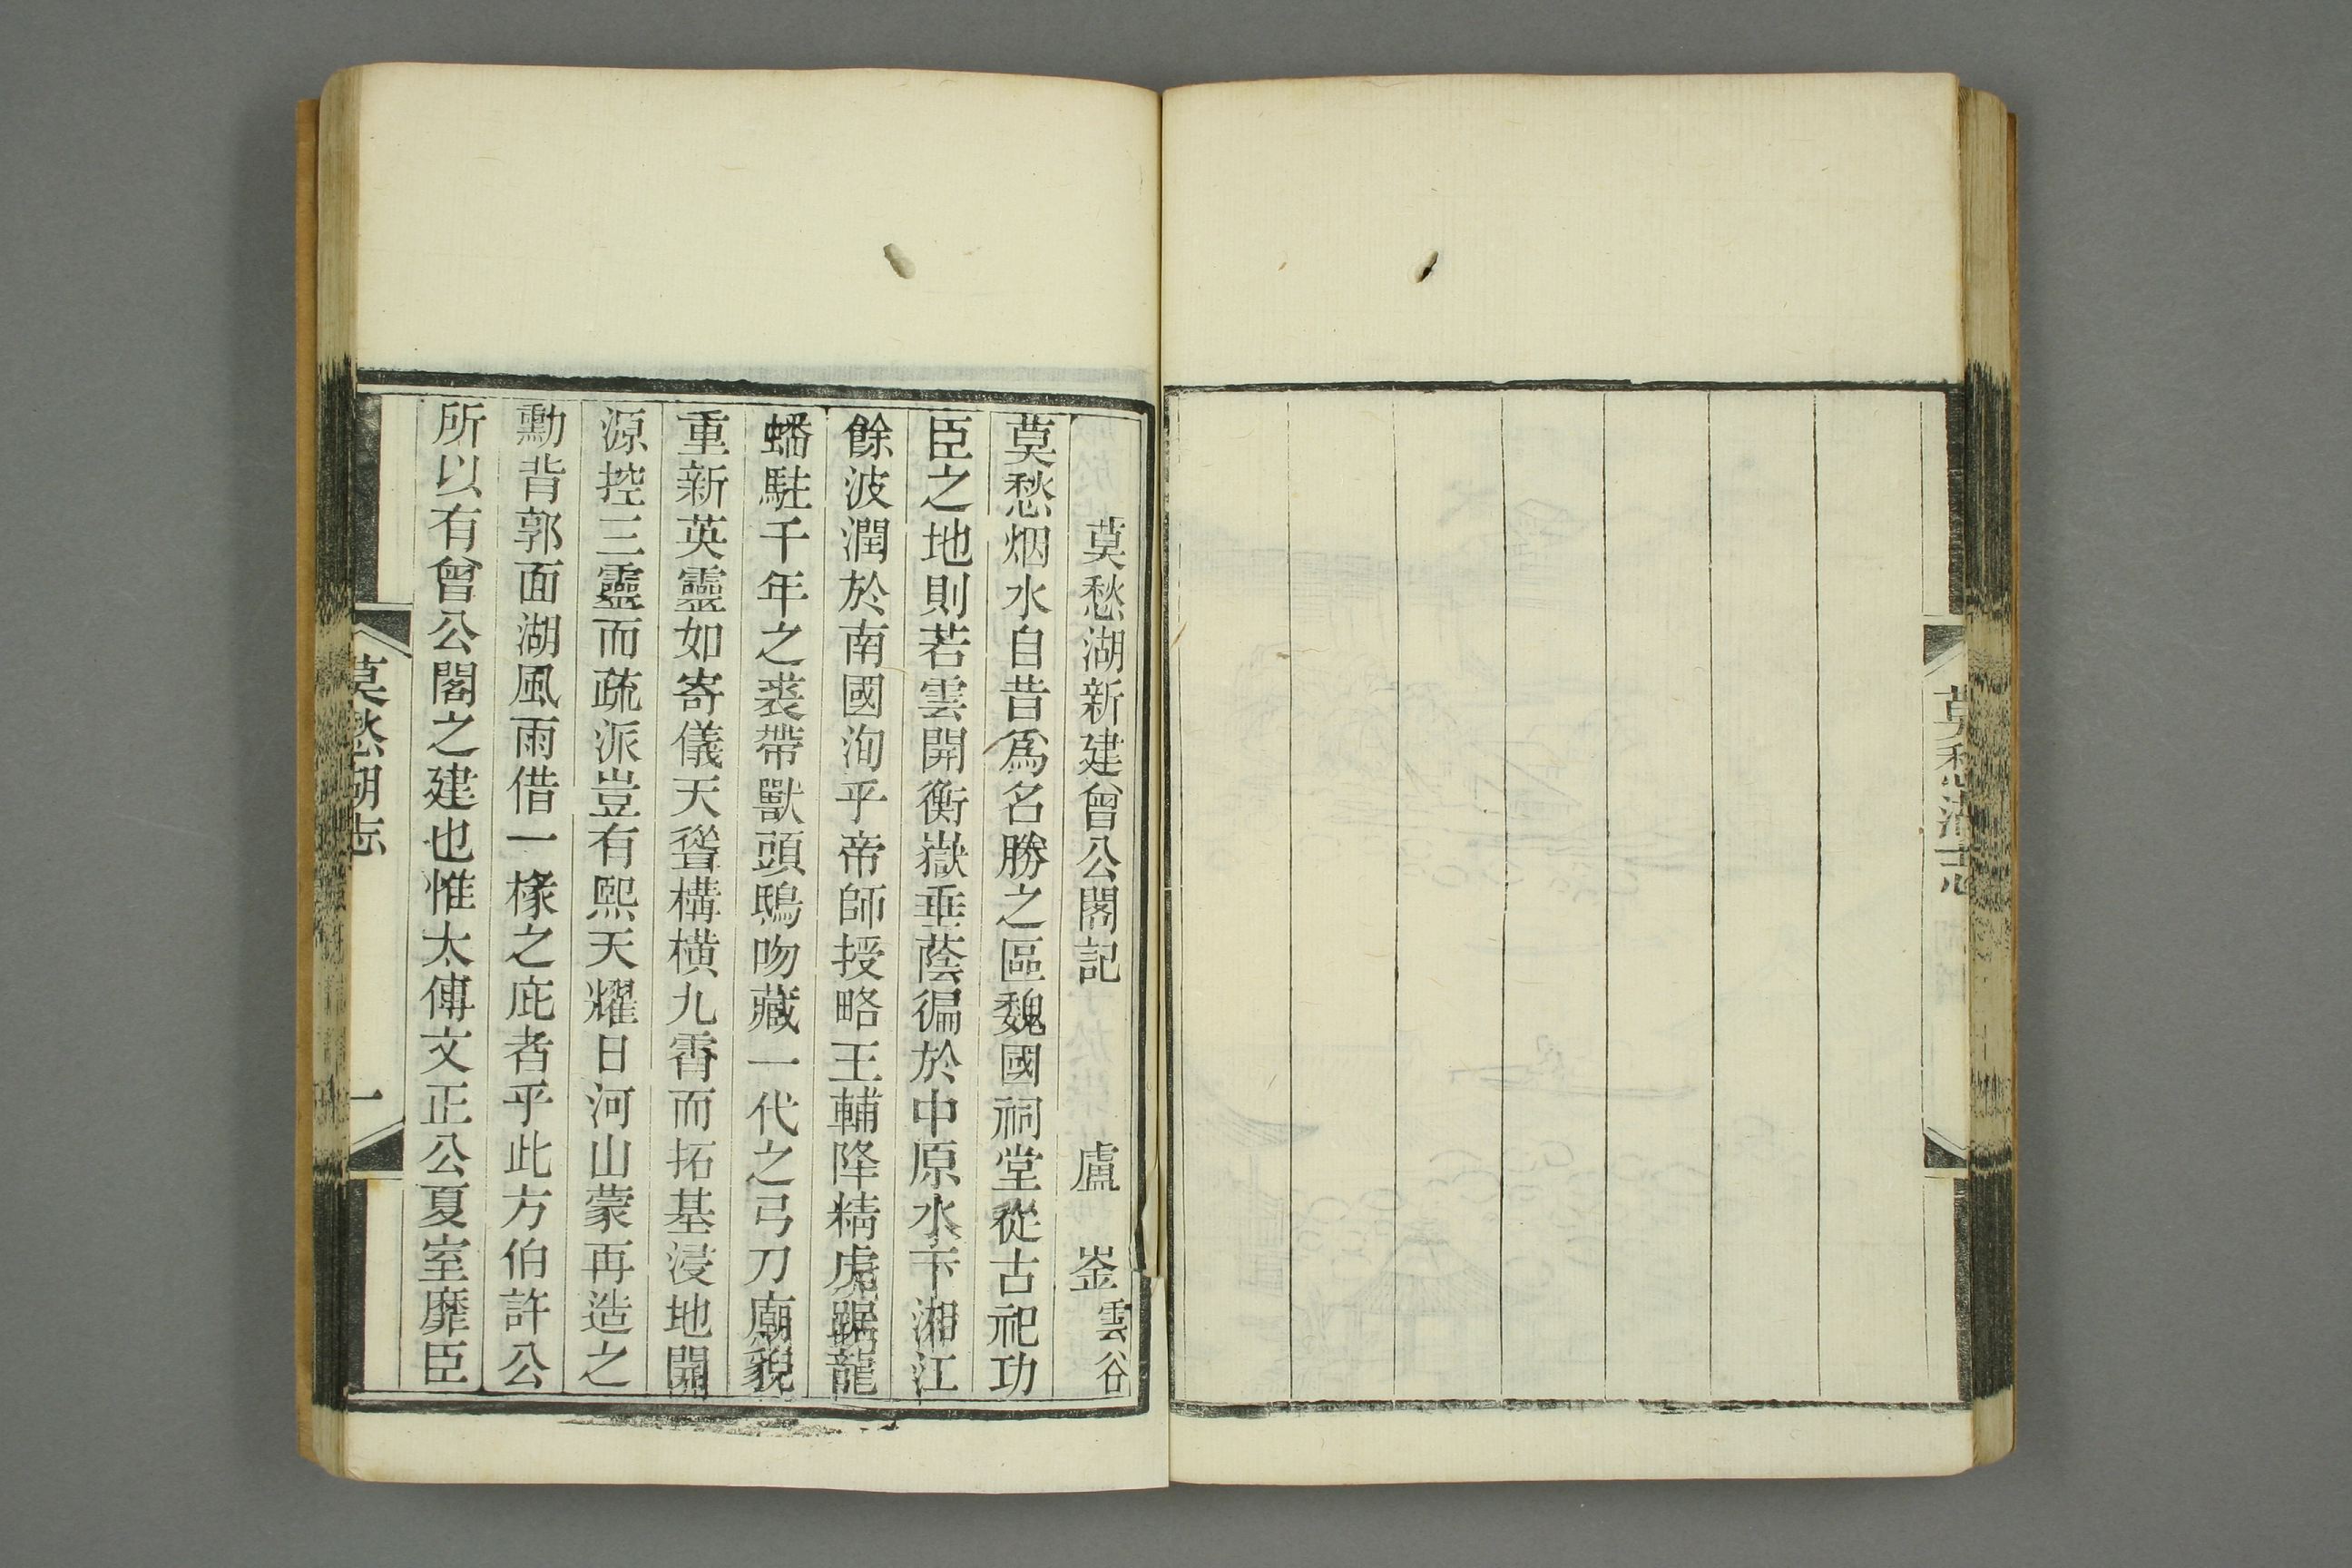 莫愁湖志
莫愁湖新建曾公閣記 盧崟雲谷
莫愁烟水自昔爲名勝之區魏國祠堂從古祀功
臣之地則若雲開衡嶽垂蔭徧於中原水下湘江
餘波潤於南國洵乎帝師授略王輔降精虎踞龍
蟠駐千年之裘帶獸頭鴟吻藏一代之弓刀廟貌
重新英靈如寄儀天聳構橫九霄而拓基浸地開
源控三靈而疏派豈有熙天耀日河山蒙再造之
勳背郭面湖風雨借一椽之庇者乎此方伯許公
所以有曾公閣之建也惟太傅文正公夏室靡臣
莫愁湖志
一